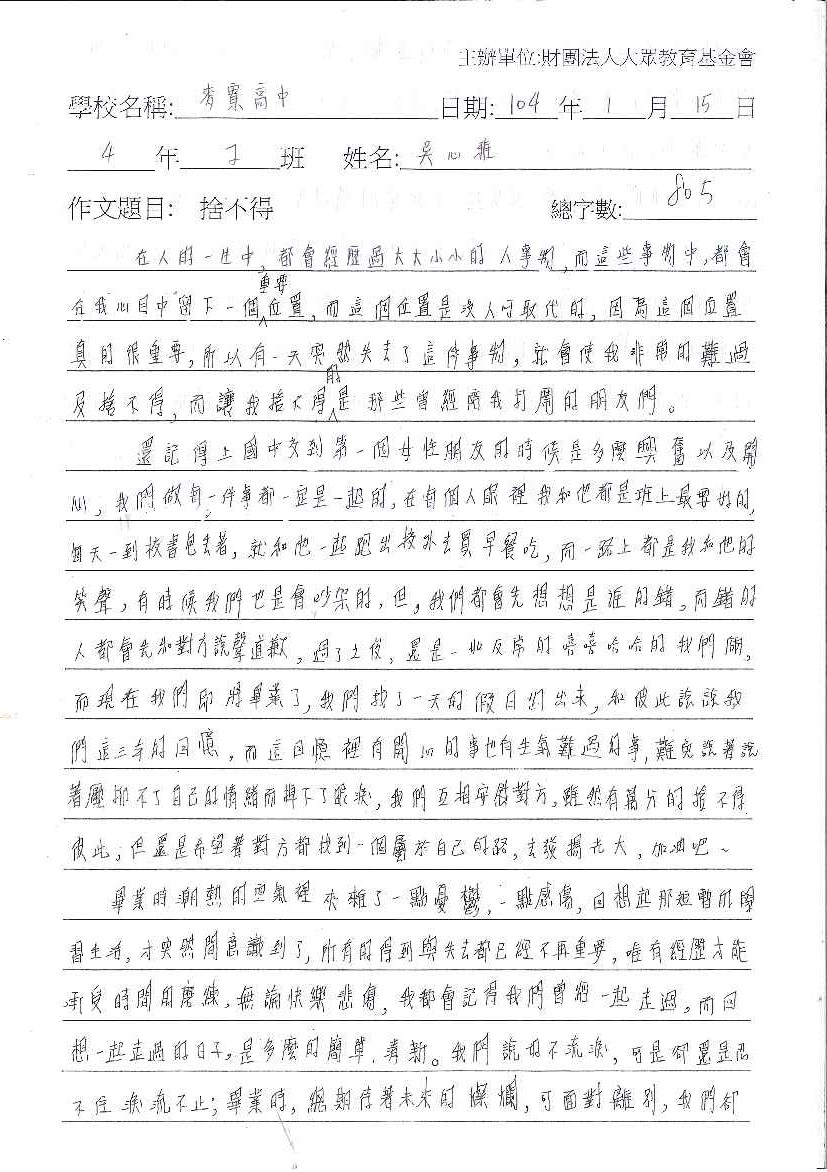 主辦單位:財團法人大眾教育基金會
學校名稱: 麥寮高中 日期: 104 年 1 月 15 日
4 年 丁 班 姓名: 吳心雅
作文題目: 捨不得 總字數: 805
在人的一生中,都會經歷過大大小小的人事物,而這些事物中,都會
在我心目中留下一個重要位置,而這個位置是沒人可取代的,因為這個位置
真的很重要,所以有一天突然失去了這件事物,就會使我非常的難過
及捨不得,而讓我捨不得的是那些曾經陪我打鬧的朋友們。
還記得上國中交到第一個女性朋友的時候是多麼興奮以及開
心,我們做每一件事都一定是一起的,在每個人眼裡我和他都是班上最要好的,
每天一到校書包丟著,就和他一起跑出校外去買早餐吃,而一路上都是我和他的
笑聲,有時候我們也是會吵架的,但,我們都會先想想是誰的錯,而錯的
人都會先和對方說聲道歉,過了之後,還是一如反常的嘻嘻哈哈的我們倆,
而現在我們即將畢業了,我們找了一天的假日們出來,和彼此談談我
們這三年的回憶,而這回憶裡有開心的事也有生氣難過的事,難免說著說
著壓抑不了自己的情緒而掉下了眼淚,我們互相安慰對方,雖然有萬分的捨不得
彼此,但還是希望著對方都找到一個屬於自己的路,去發揚光大,加油吧~
畢業時潮熱的空氣裡夾雜了一點憂鬱,一點感傷,回想起那短暫的學
習生活,才突然間意識到了,所有的得到與失去都已經不再重要,唯有經歷才能
承受時間的磨練,無論快樂悲傷,我都會記得我們曾經一起走過,而回
想一起走過的日子,是多麼的簡單、清新。我們說好不流淚,可是卻還是忍
不住淚流不止;畢業時,總期待著未來的燦爛,可面對離別,我們卻